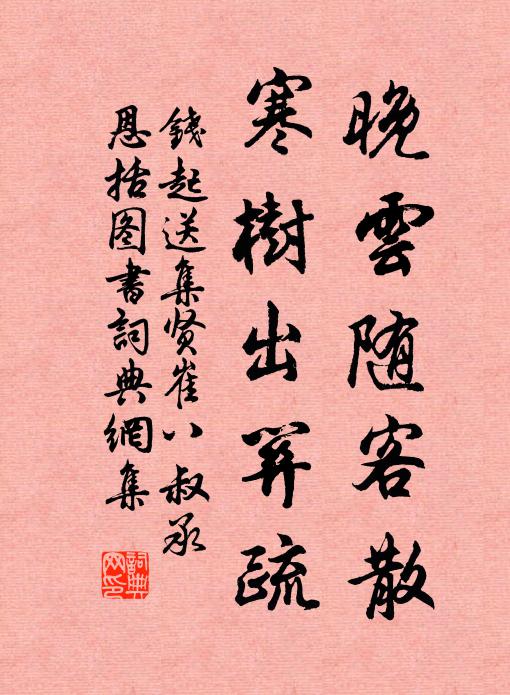 晚雲随客散
寒樹出關疏
錢起送集贤崔八叔承
恩括图書詞典網集
詞典
网印